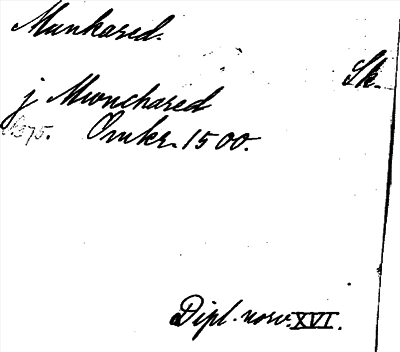 Munkared.
Sk.
j Mwnchared
375. Omkr. 1500.
Dipl. norv. XVI.